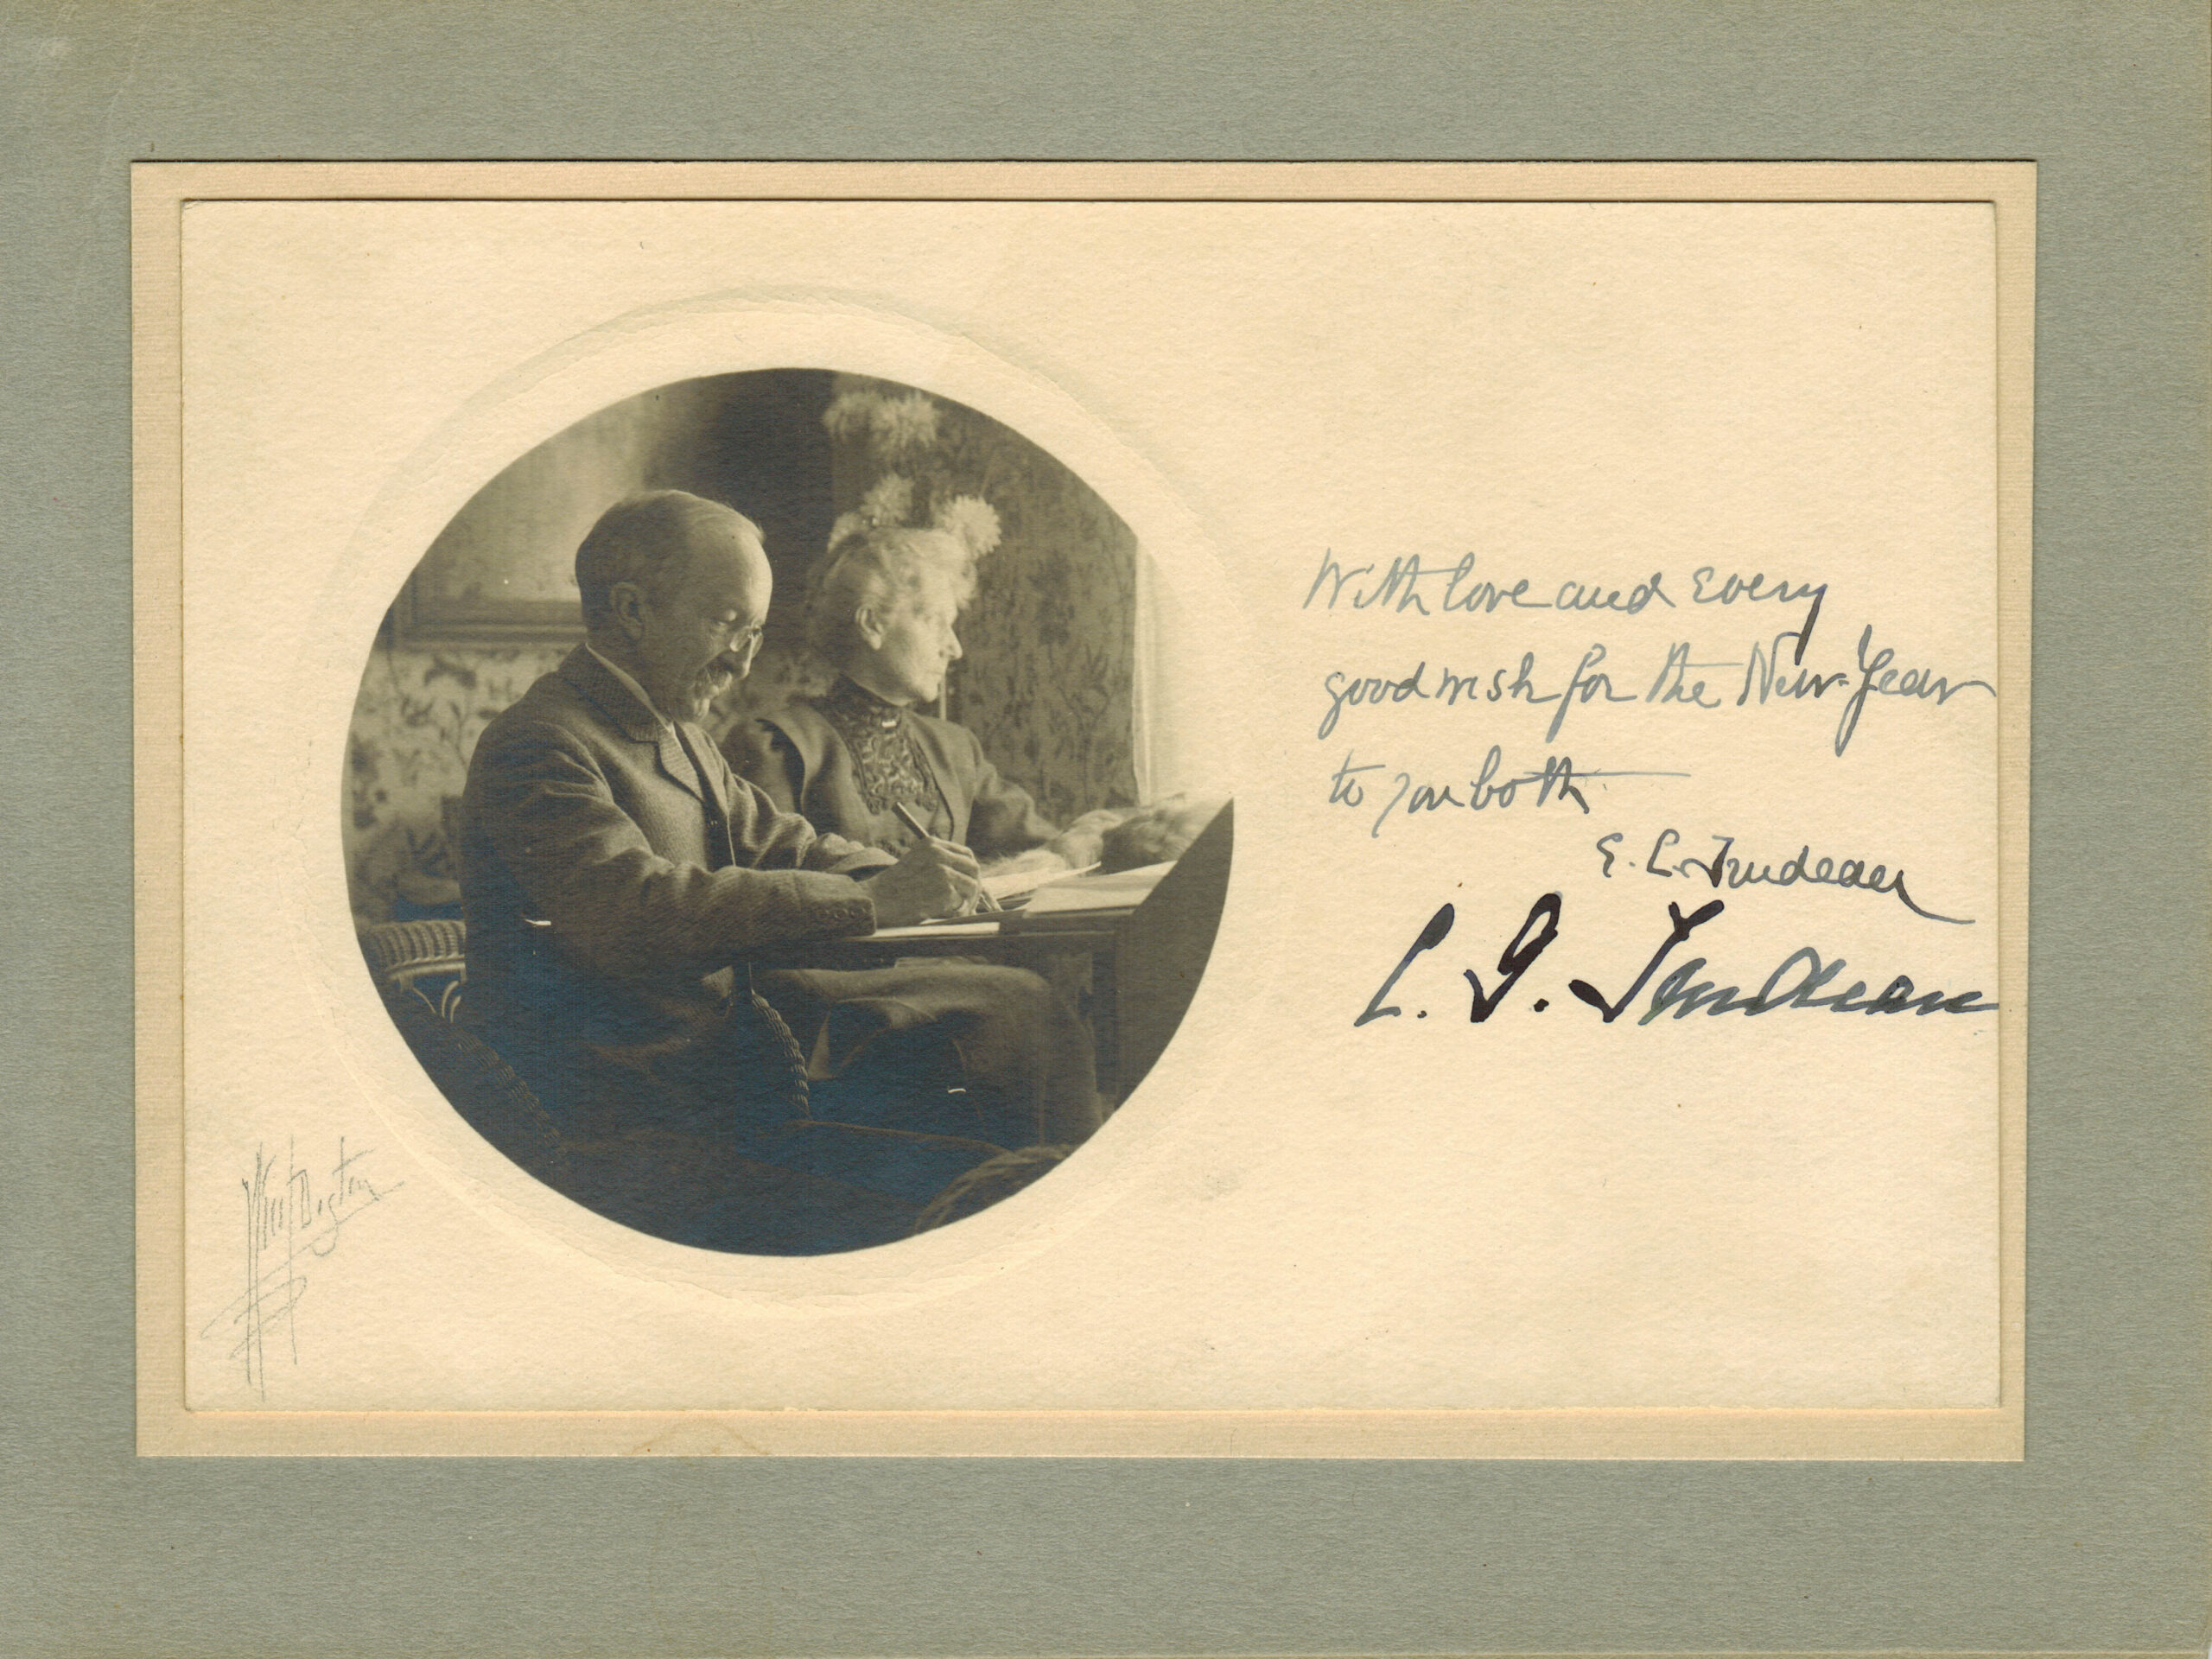 With love and every
good wish for the New-Year
to you both
E. L. Trudeau
C. G. Trudeau